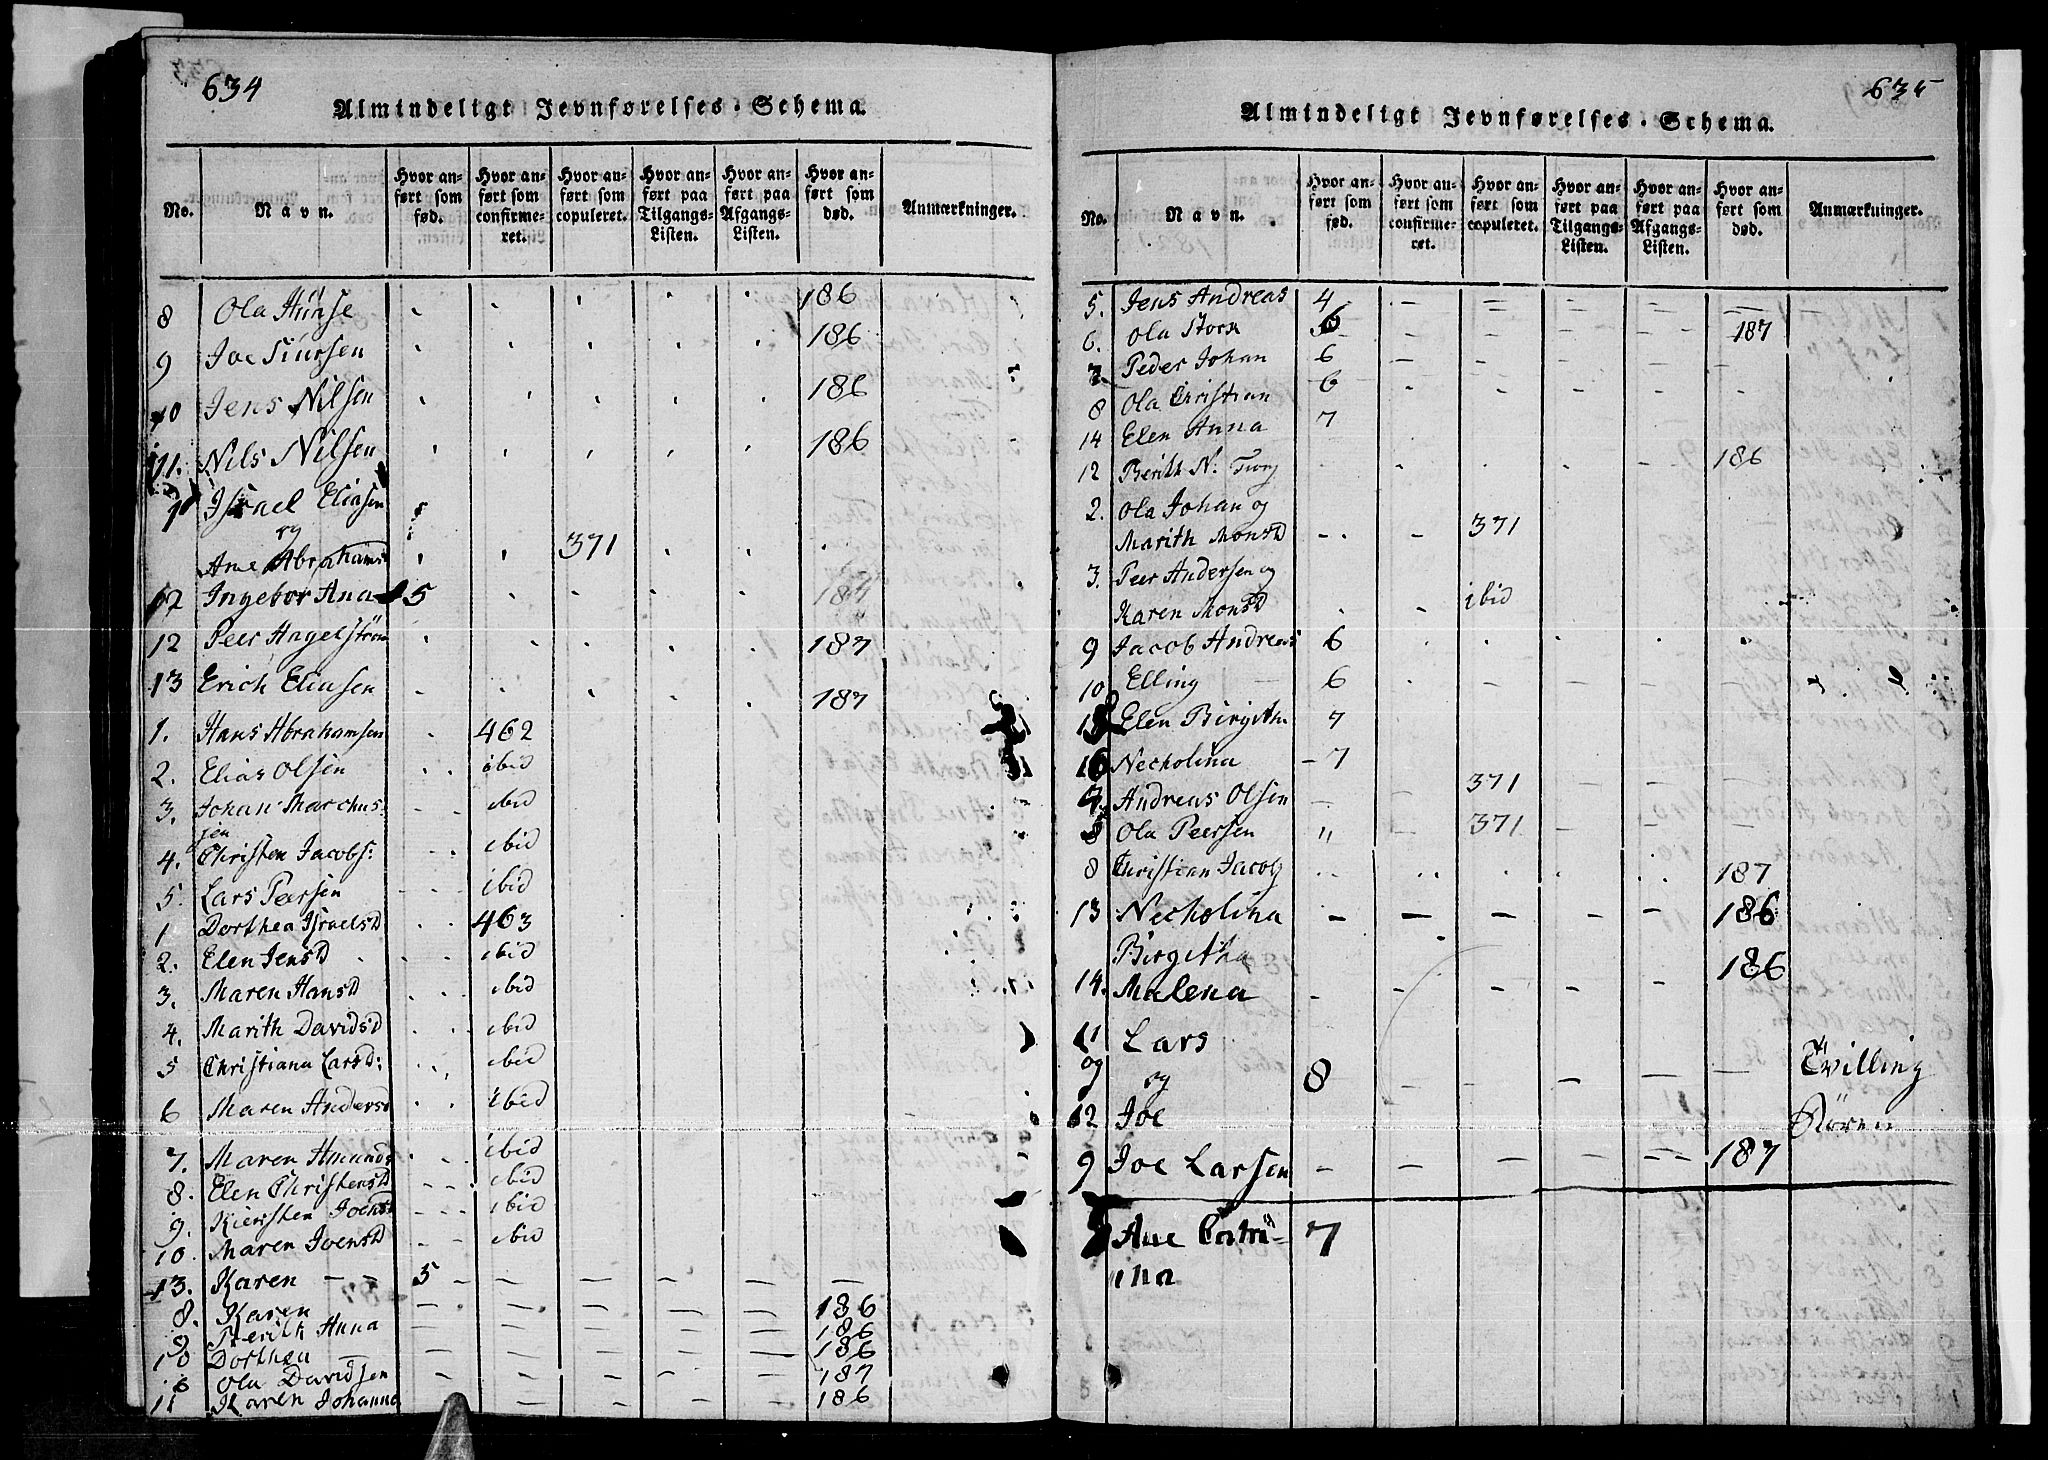 634
Almindeligt Jevnførelses-Schema.
No.
Navn.
Hvor anført som fød.
Hvor anført som confirmeret.
Hvor anført som copuleret.
Hvor anført paa Tilgangs-Listen.
Hvor anført paa Afgangs-Listen.
Hvor anført som død.
Anmærkninger.
8 Ola 186
9 Joe Siursen 186
10 Jens Nilsen 186
11. Nils Nilsen 186
1 Israel Eliasen
og
Ane Abrahamsd 371
12 Ingebor Ana 5
12 Peer Angelström 187
13 Erich Eliasen 187
1. Hans Abrahamsen 462
2. Elias Olsen ibid
3. Johan Marchus: ibid
sen
4. Christen Jacobs: ibid
5. Lars Peersen ibid
1 Dorthea Israelsd 463
2. Elen Jensd ibid
3. Maren Hansd ibid
4. Marith Davidsd ibid
5 Christiana Larsd: ibid
6 Maren Andersd ibid
7. Maren Amunds ibid
8. Elen Christensd ibid
9. Kiersten Joensd ibid
10. Maren Joensd ibid
13. Karen — — 5 — — — — — —
8. Karen — — — — — 186
9 Berith Anna — — — — — 186
10 Dorthea — — — — — 186
Ola Davidsen — — — — — 187
11 Karen Johanna — — — — 186
635
Almindeligt Jevnførelses-Schema.
No.
Navn.
Hvor anført som fød.
Hvor anført som confirmeret.
Hvor anført som copuleret.
Hvor anført paa Tilgangs-Listen.
Hvor anført paa Afgangs-Listen.
Hvor anført som død.
Anmærkninger.
5. Jens Andreas 4
6. Ola 187
7 Peder Johan 6
8 Ola Christian 6
14 Elen Anna 7
12 Berith N: 186
2. Ola Johan og
Marith Monsd 371
3. Peer Andersen og
Karen Monsd ibid
9 Jacob Andreas 6
10 Elling 6
Elen Birgitha 7
16 Necholina 7
Andreas Olsen 371
8 Ola Peersen " 371
8 Christian Jacob 187
13 Necholina 186
Birgitha
14. Malena 186
11 Lars
og og 8 Tvilling
12 Joe Dören
9 Joe Larsen 187
Ane Catri- 7
ina